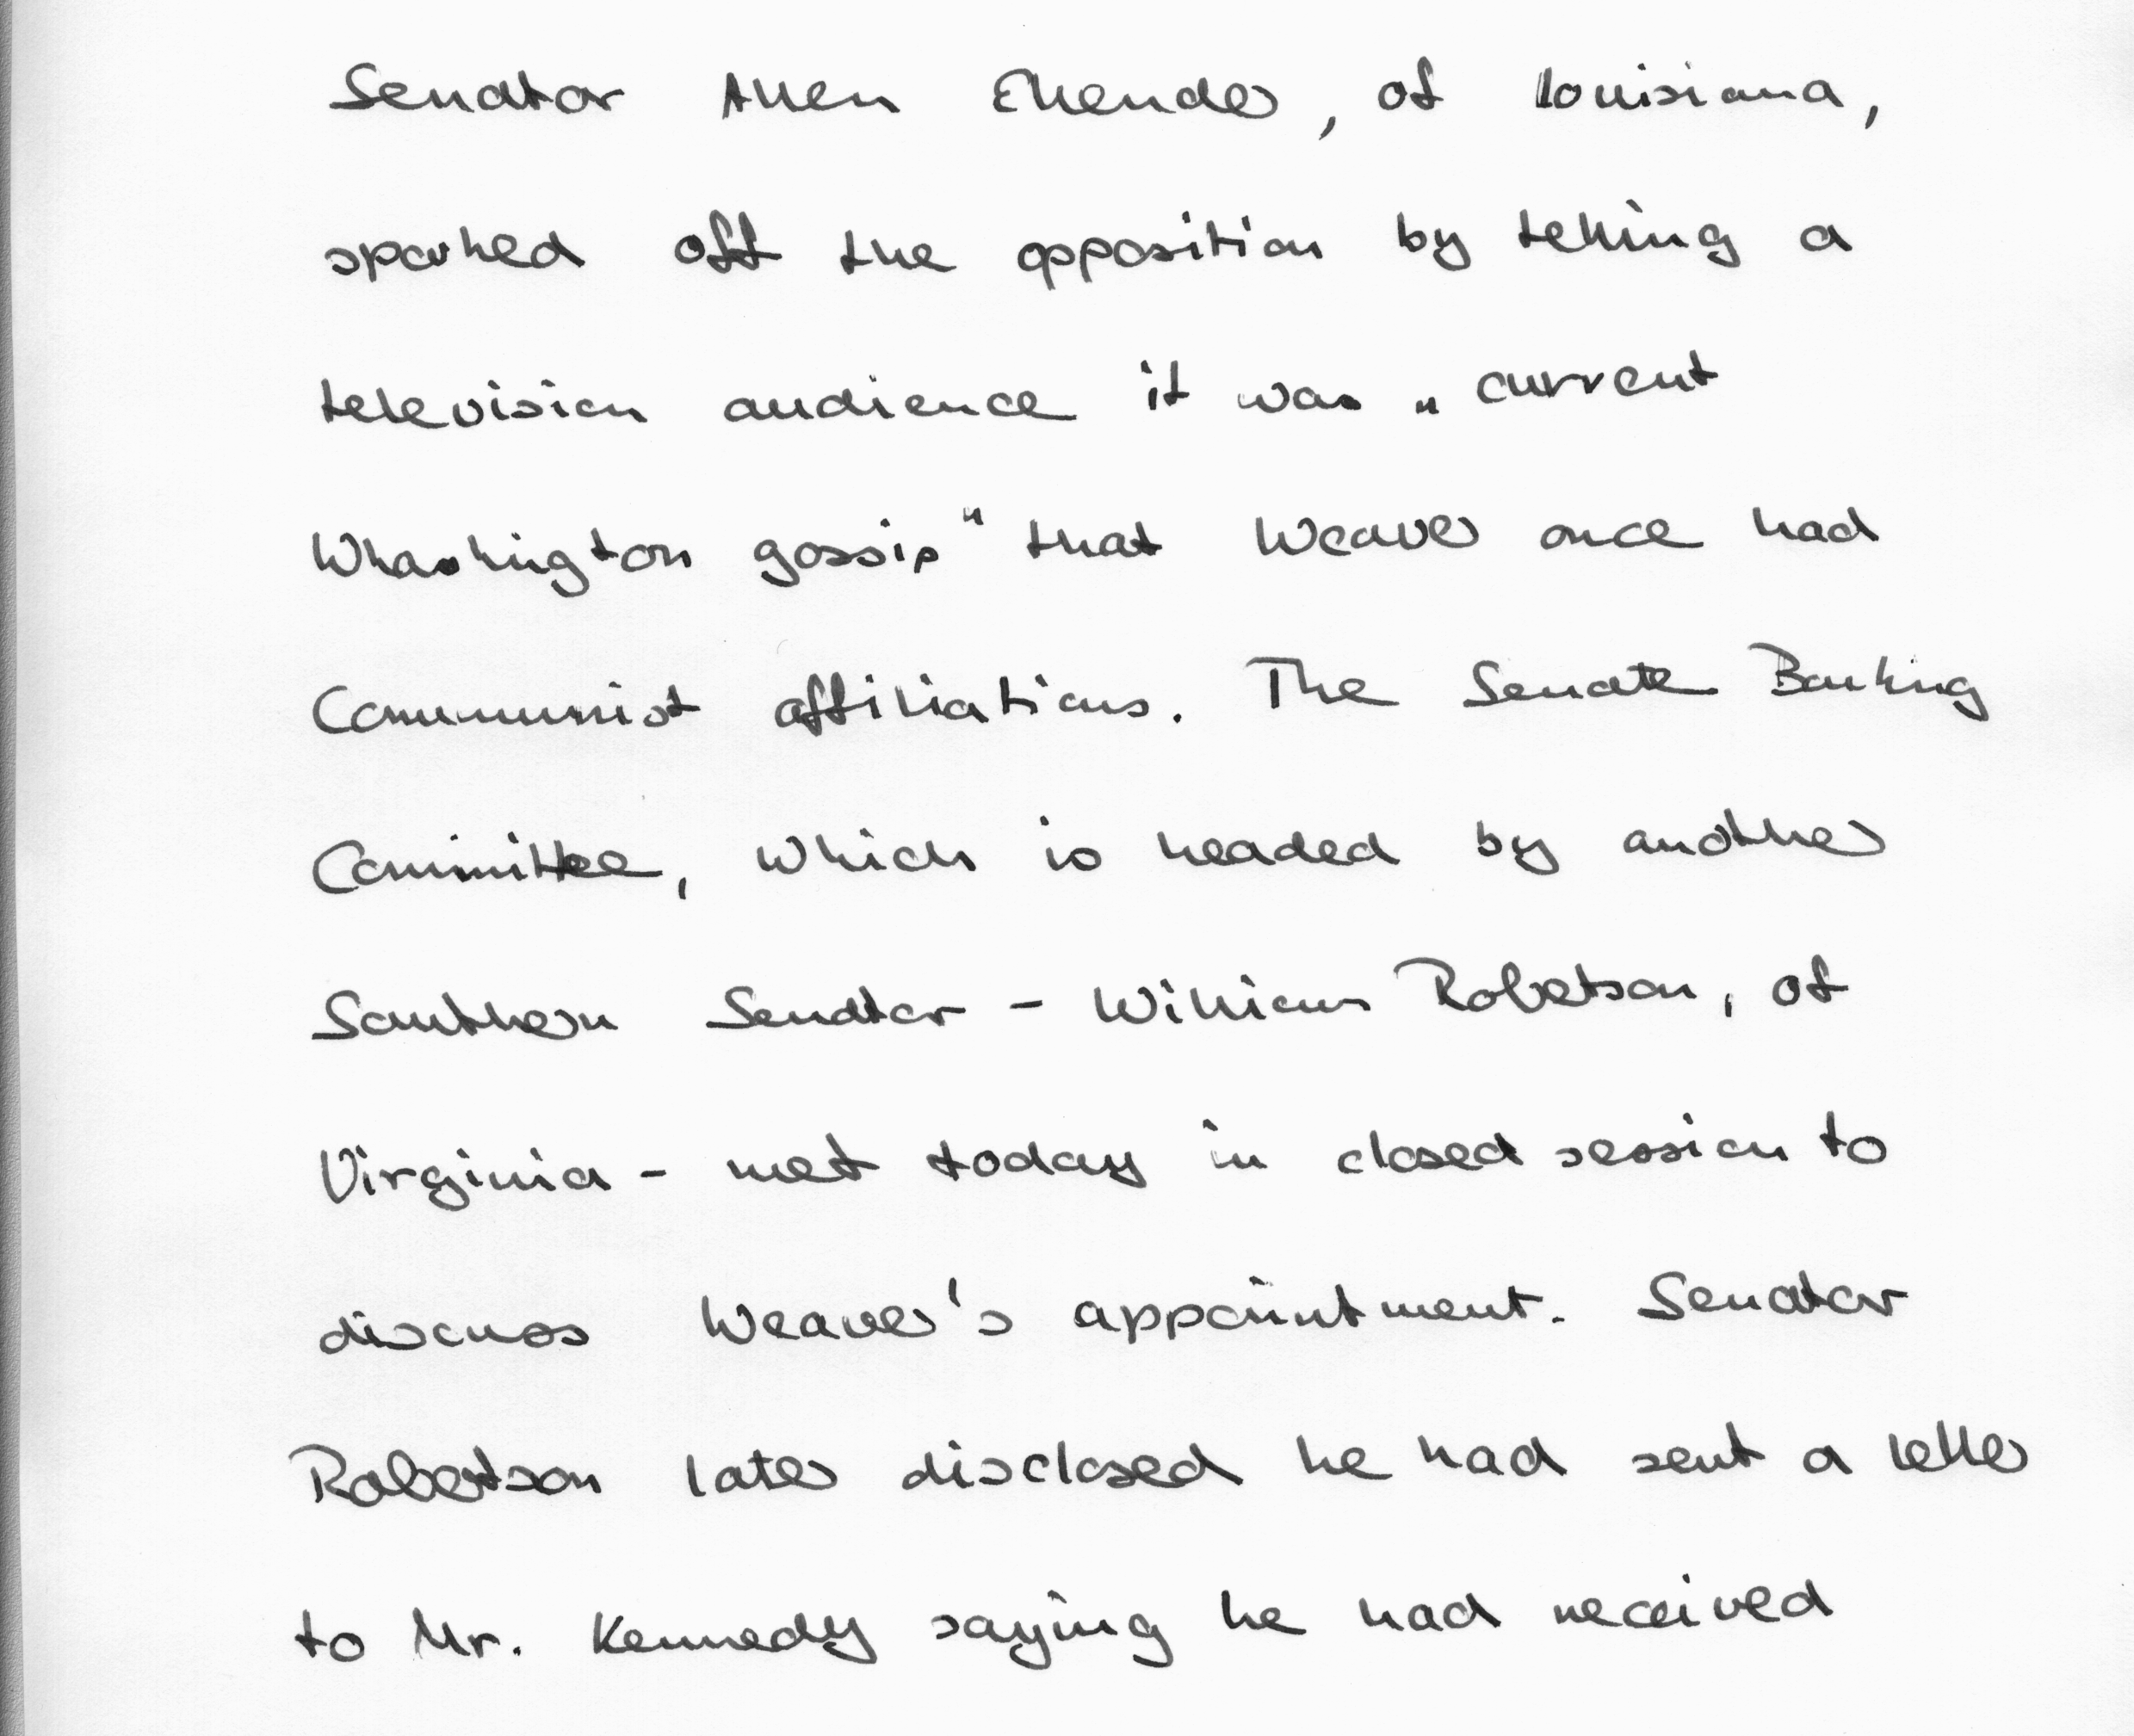 Senator Allen Ellender, of Louisiana,
sparked off the opposition by telling a
television audience it was „current
Whashington gossip" that Weaver once had
Communist affiliations. The Senate Banking
Committee, which is headed by another
Southern Senator - William Robertson, of
Virginia - met today in closed session to
discuss Weaver's appointment. Senator
Robertson later disclosed he had sent a letter
to Mr. Kennedy saying he had received